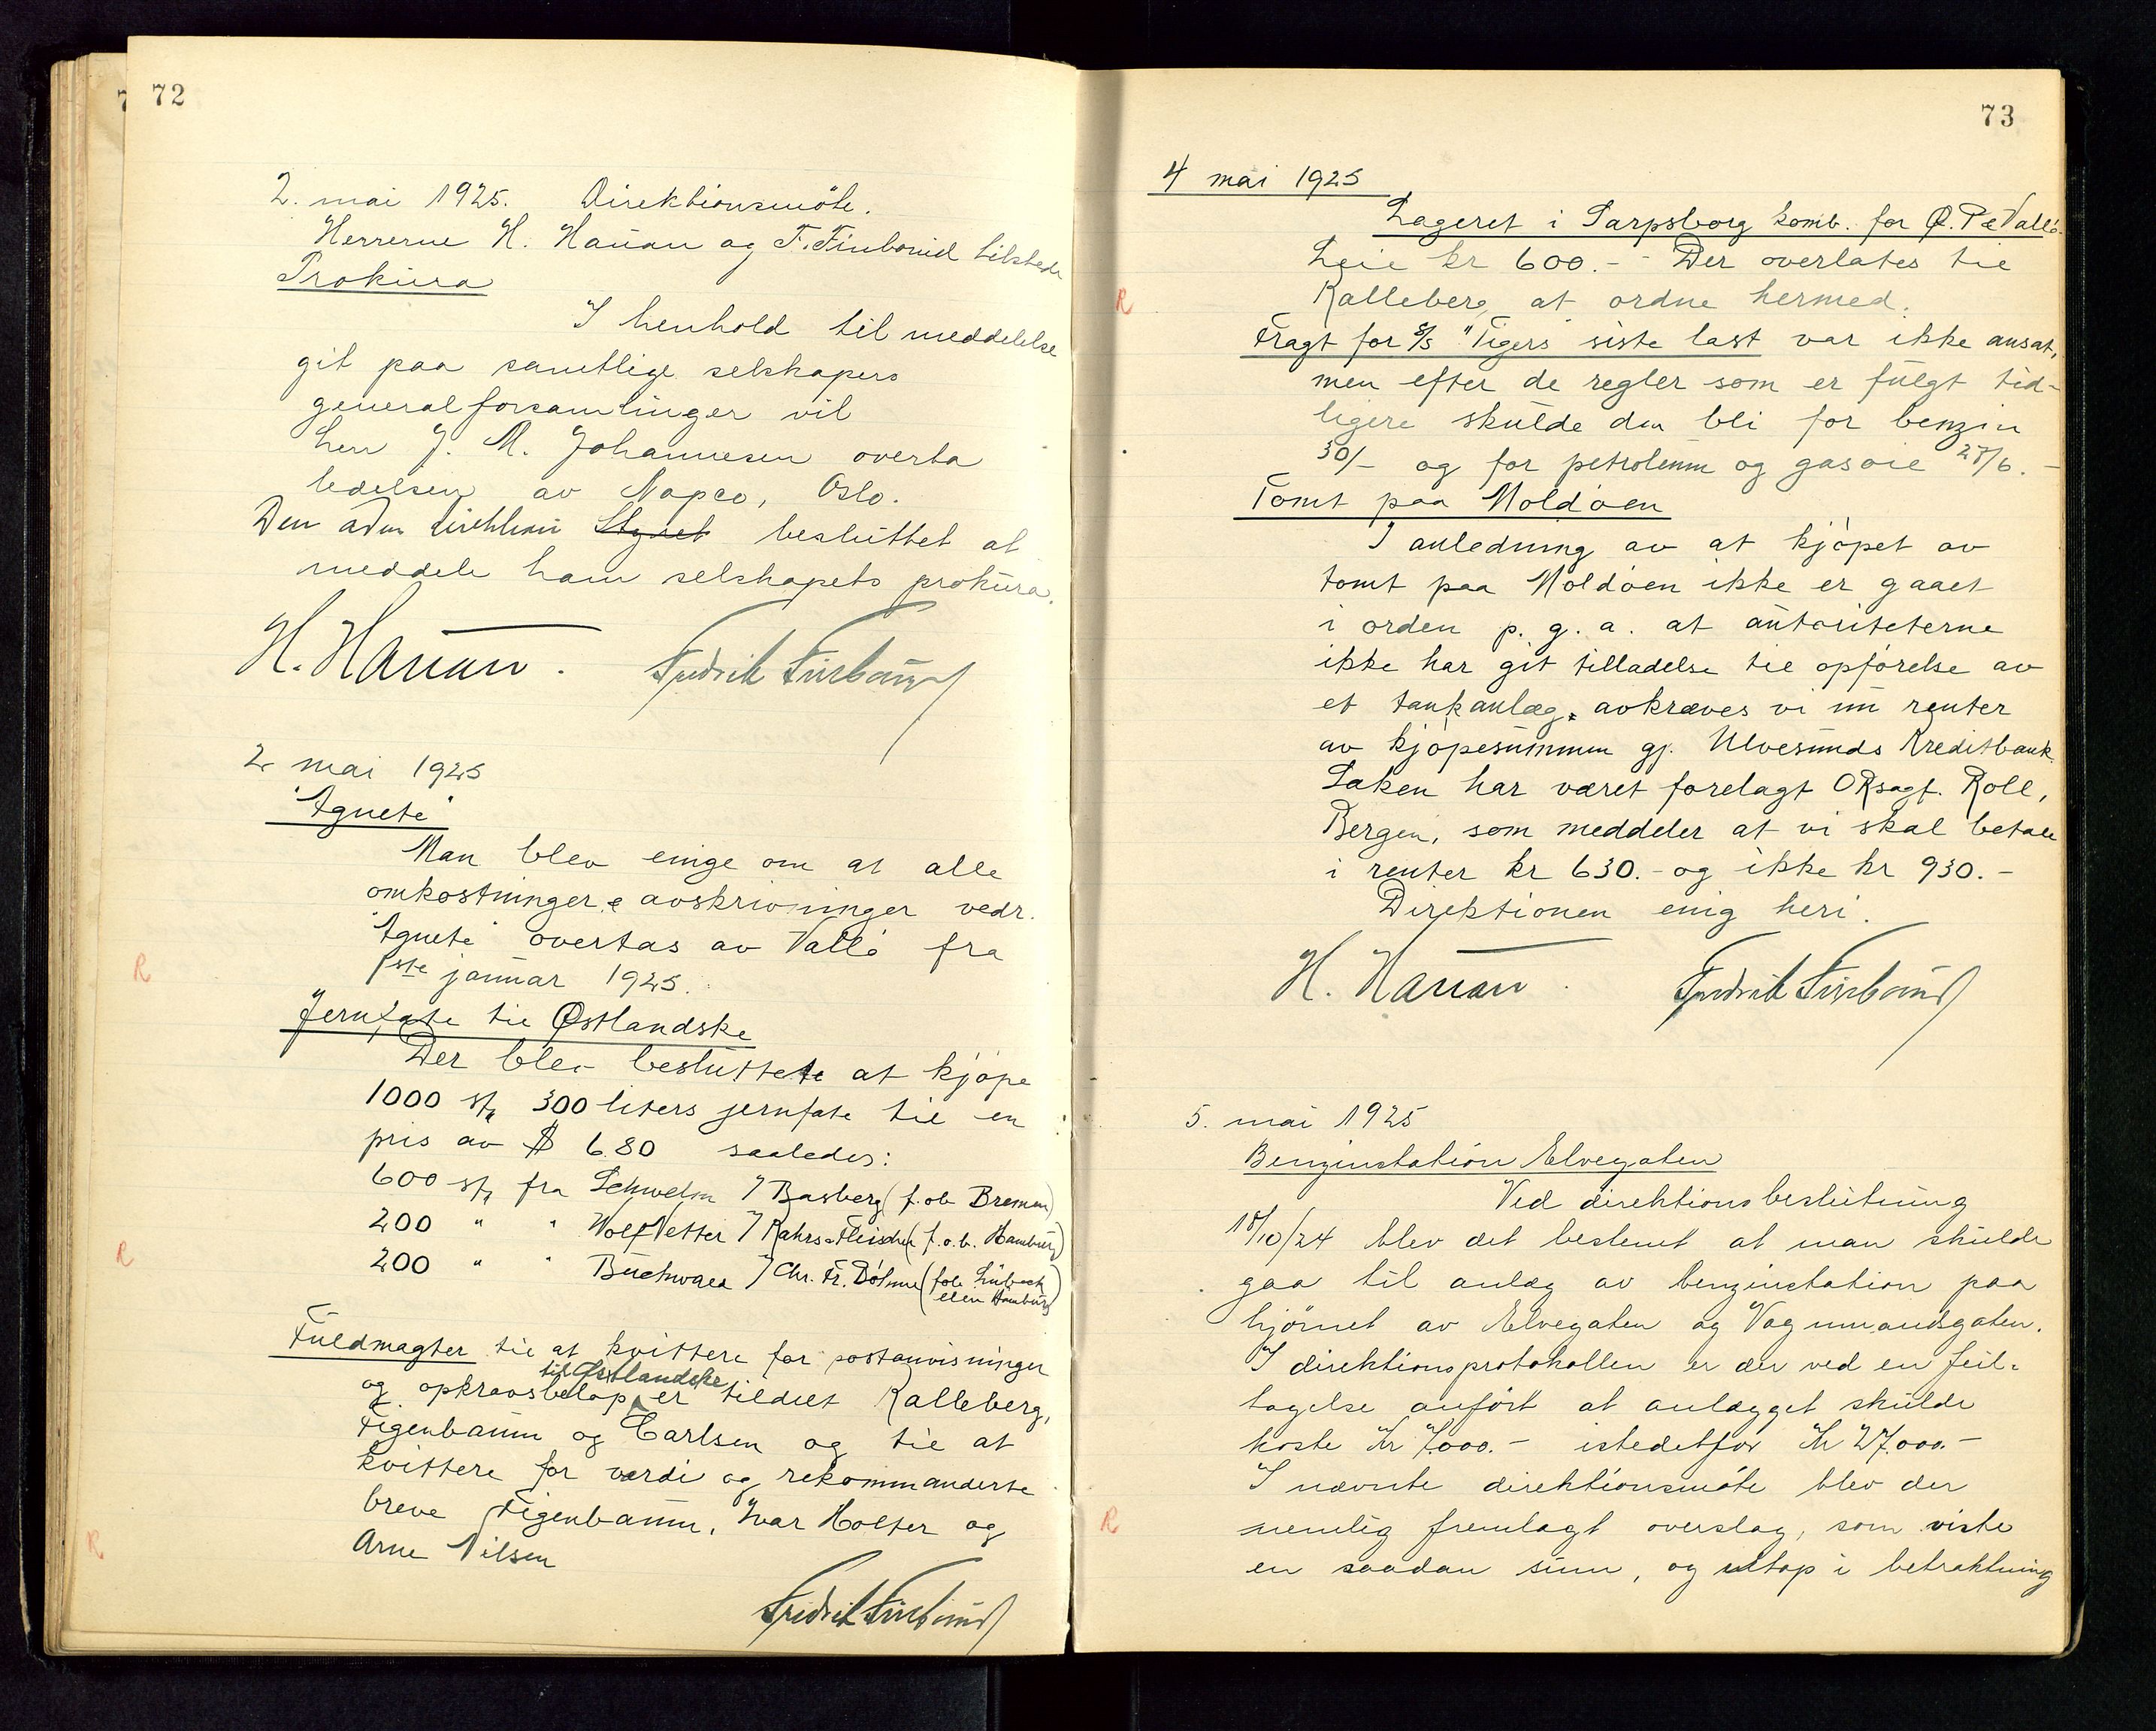 72
2. mai 1925. Direktionsmöte.
Herrerne H. Hauan og F. Finborud tilstede
Prokura
I henhold til meddelelse
git paa samtlige selskapers
generalforsamlinger vil
herr J. M. Johannesen overta
ledelsen av Napeo, Oslo.
Den adm direktion Styret besluttet at
meddele ham selskapets prokura.
H. Hauan. Fredrik
2 mai 1925
"Agnete"
Man blev enige om at alle
omkostninger & avskrivninger vedr.
"Agnete" overtas av Vallö fra
1ste januar 1925.
Jernfate til Østlandske
Der blev besluttete at kjöpe
1000 stk 300 liters jernfate til en
pris av $ 6.80 saaledes:
600 stk fra Schwelm / Basberg (f.o.b Bremen)
200 " " Wolf Netter / Kahrs & Fleischer (f.o.b. Hamburg)
200 " " Buchwald / Chr. Fr. Böhme (fob Lübeck
eller Hamburg)
Fuldmagter til at kvittere for postanvisninger
til Østlandske
og opkravsbelöp er tildelt Kalleberg,
Figenbaum og Carlsen og til at
kvittere for værdi og rekommanderte
breve Figenbaum, Ivar Holter og
Arne Nilsen
Fredrik
R
R
R
73
4 mai 1925
Lageret i Sarpsborg komb. for Ø. P & Vallö.
Leie kr 600.- - Der overlates til
Kalleberg at ordne hermed.
Fragt for s/s "Tigers" siste last var ikke ansat,
men efter de regler som er fulgt tid-
ligere skulde den bli for benzin
30/- og for petroleum og gasoil 27/6. -
Tomt paa Moldöen
I anledning av at kjöpet av
tomt paa Moldöen ikke er gaaet
i orden p. g. a. at autoriteterne
ikke har git tilladelse til opförelse av
et tankanlæg, avkræves vi nu renter
av kjöpesummen gj. Ulvesunds Kreditbank.
Saken har været forelagt ORsagf. Roll,
Bergen, som meddeler at vi skal betale
i renter kr 630.- og ikke kr 930.-
Direktionen enig heri.
H. Hauan. Fredrik
5. mai 1925
Benzinstation Elvegaten
Ved direktionsbeslutning
18/10/24 blev det bestemt at man skulde
gaa til anlæg av benzinstation paa
hjörnet av Elvegaten og Vognmandsgaten.
I direktionsprotokollen er der ved en feil-
tagelse anfört at anlægget skulde
koste Kr 7.000.- istedetfor Kr 27.000.-
I nævnte direktionsmöte blev der
nemlig fremlagt overslag, som viste
en saadan sum, og i betraktning
R
R